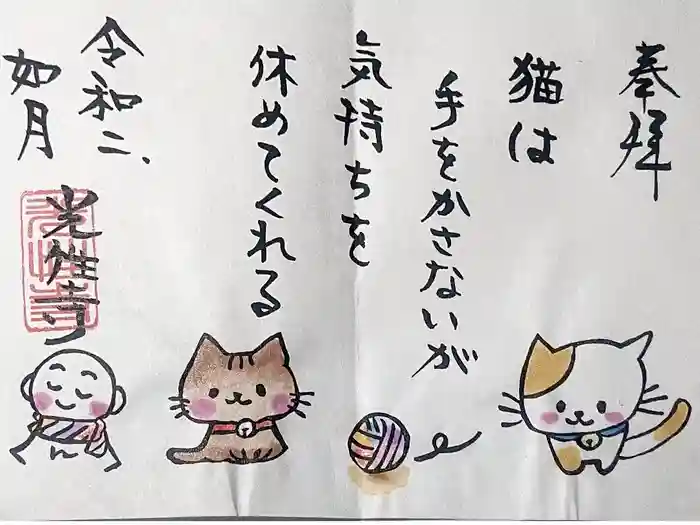 奉拝
猫は
手をかさないが
気持ちを
休めてくれる
令和二、
如月
光性寺